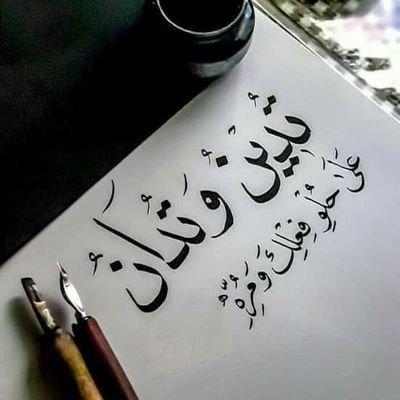 تُدِينُ وَتُدَانُ
عَلَى حُلْوِ فِعْلِكَ وَمُرِّهِ